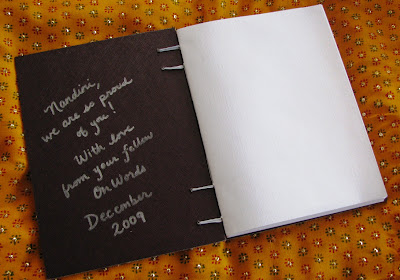 Nandini,
we are so proud
of you!
With love
from your fellow
OnWords
December
2009